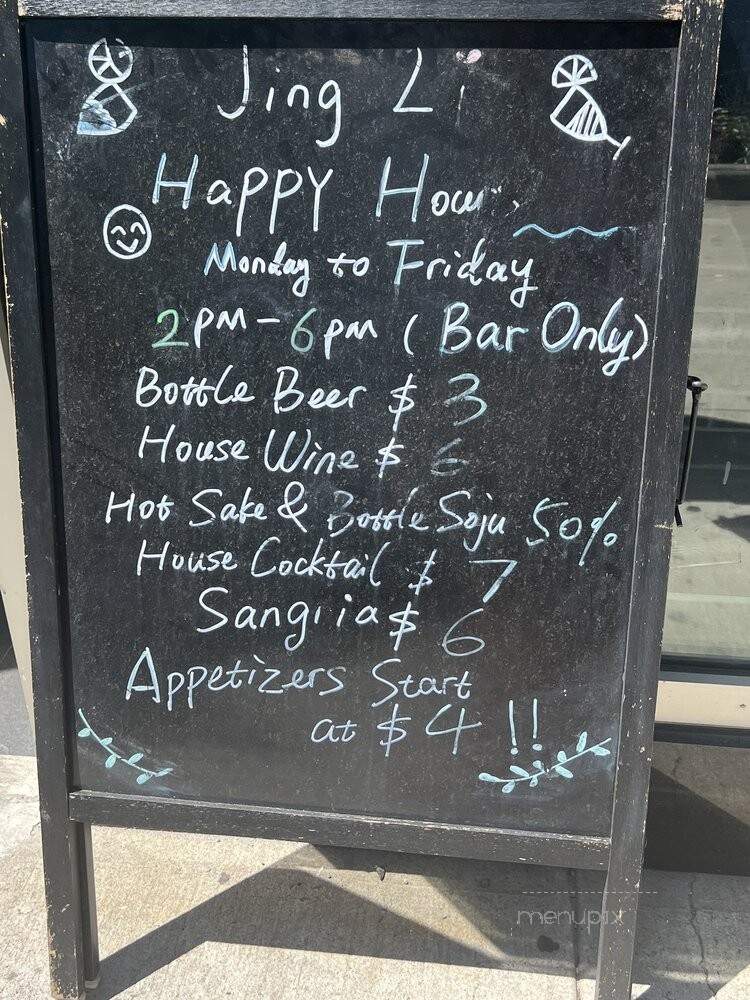 Jing Li
Happy Hour
Monday to Friday
2pm - 6pm (Bar Only)
Bottle Beer $ 3
House Wine $ 6
Hot Sake & Bottle Soju 50%
House Cocktail $ 7
Sangria $ 6
Appetizers Start
at $ 4 !!
menupix